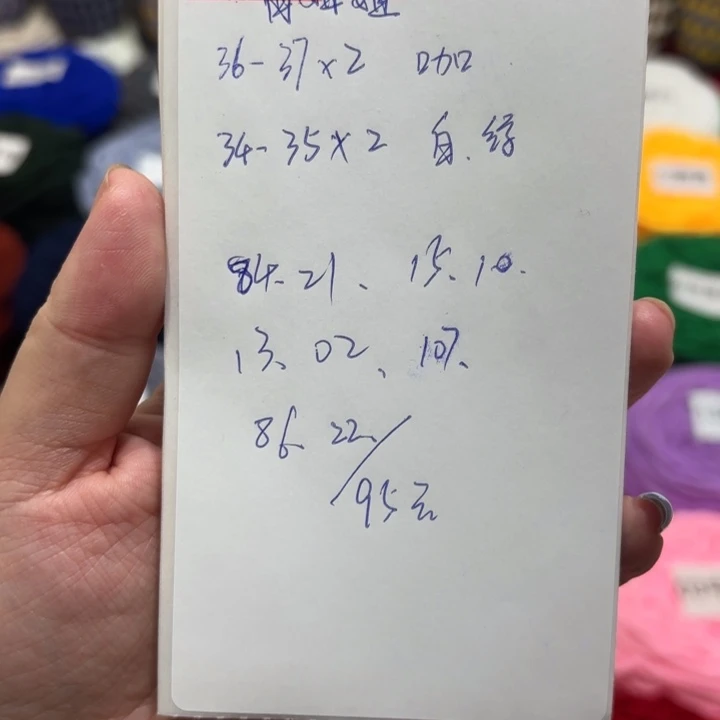 36-37×2 咖
34-35×2 自.综
84-21、15.10.
13、02、107.
86 22
95元